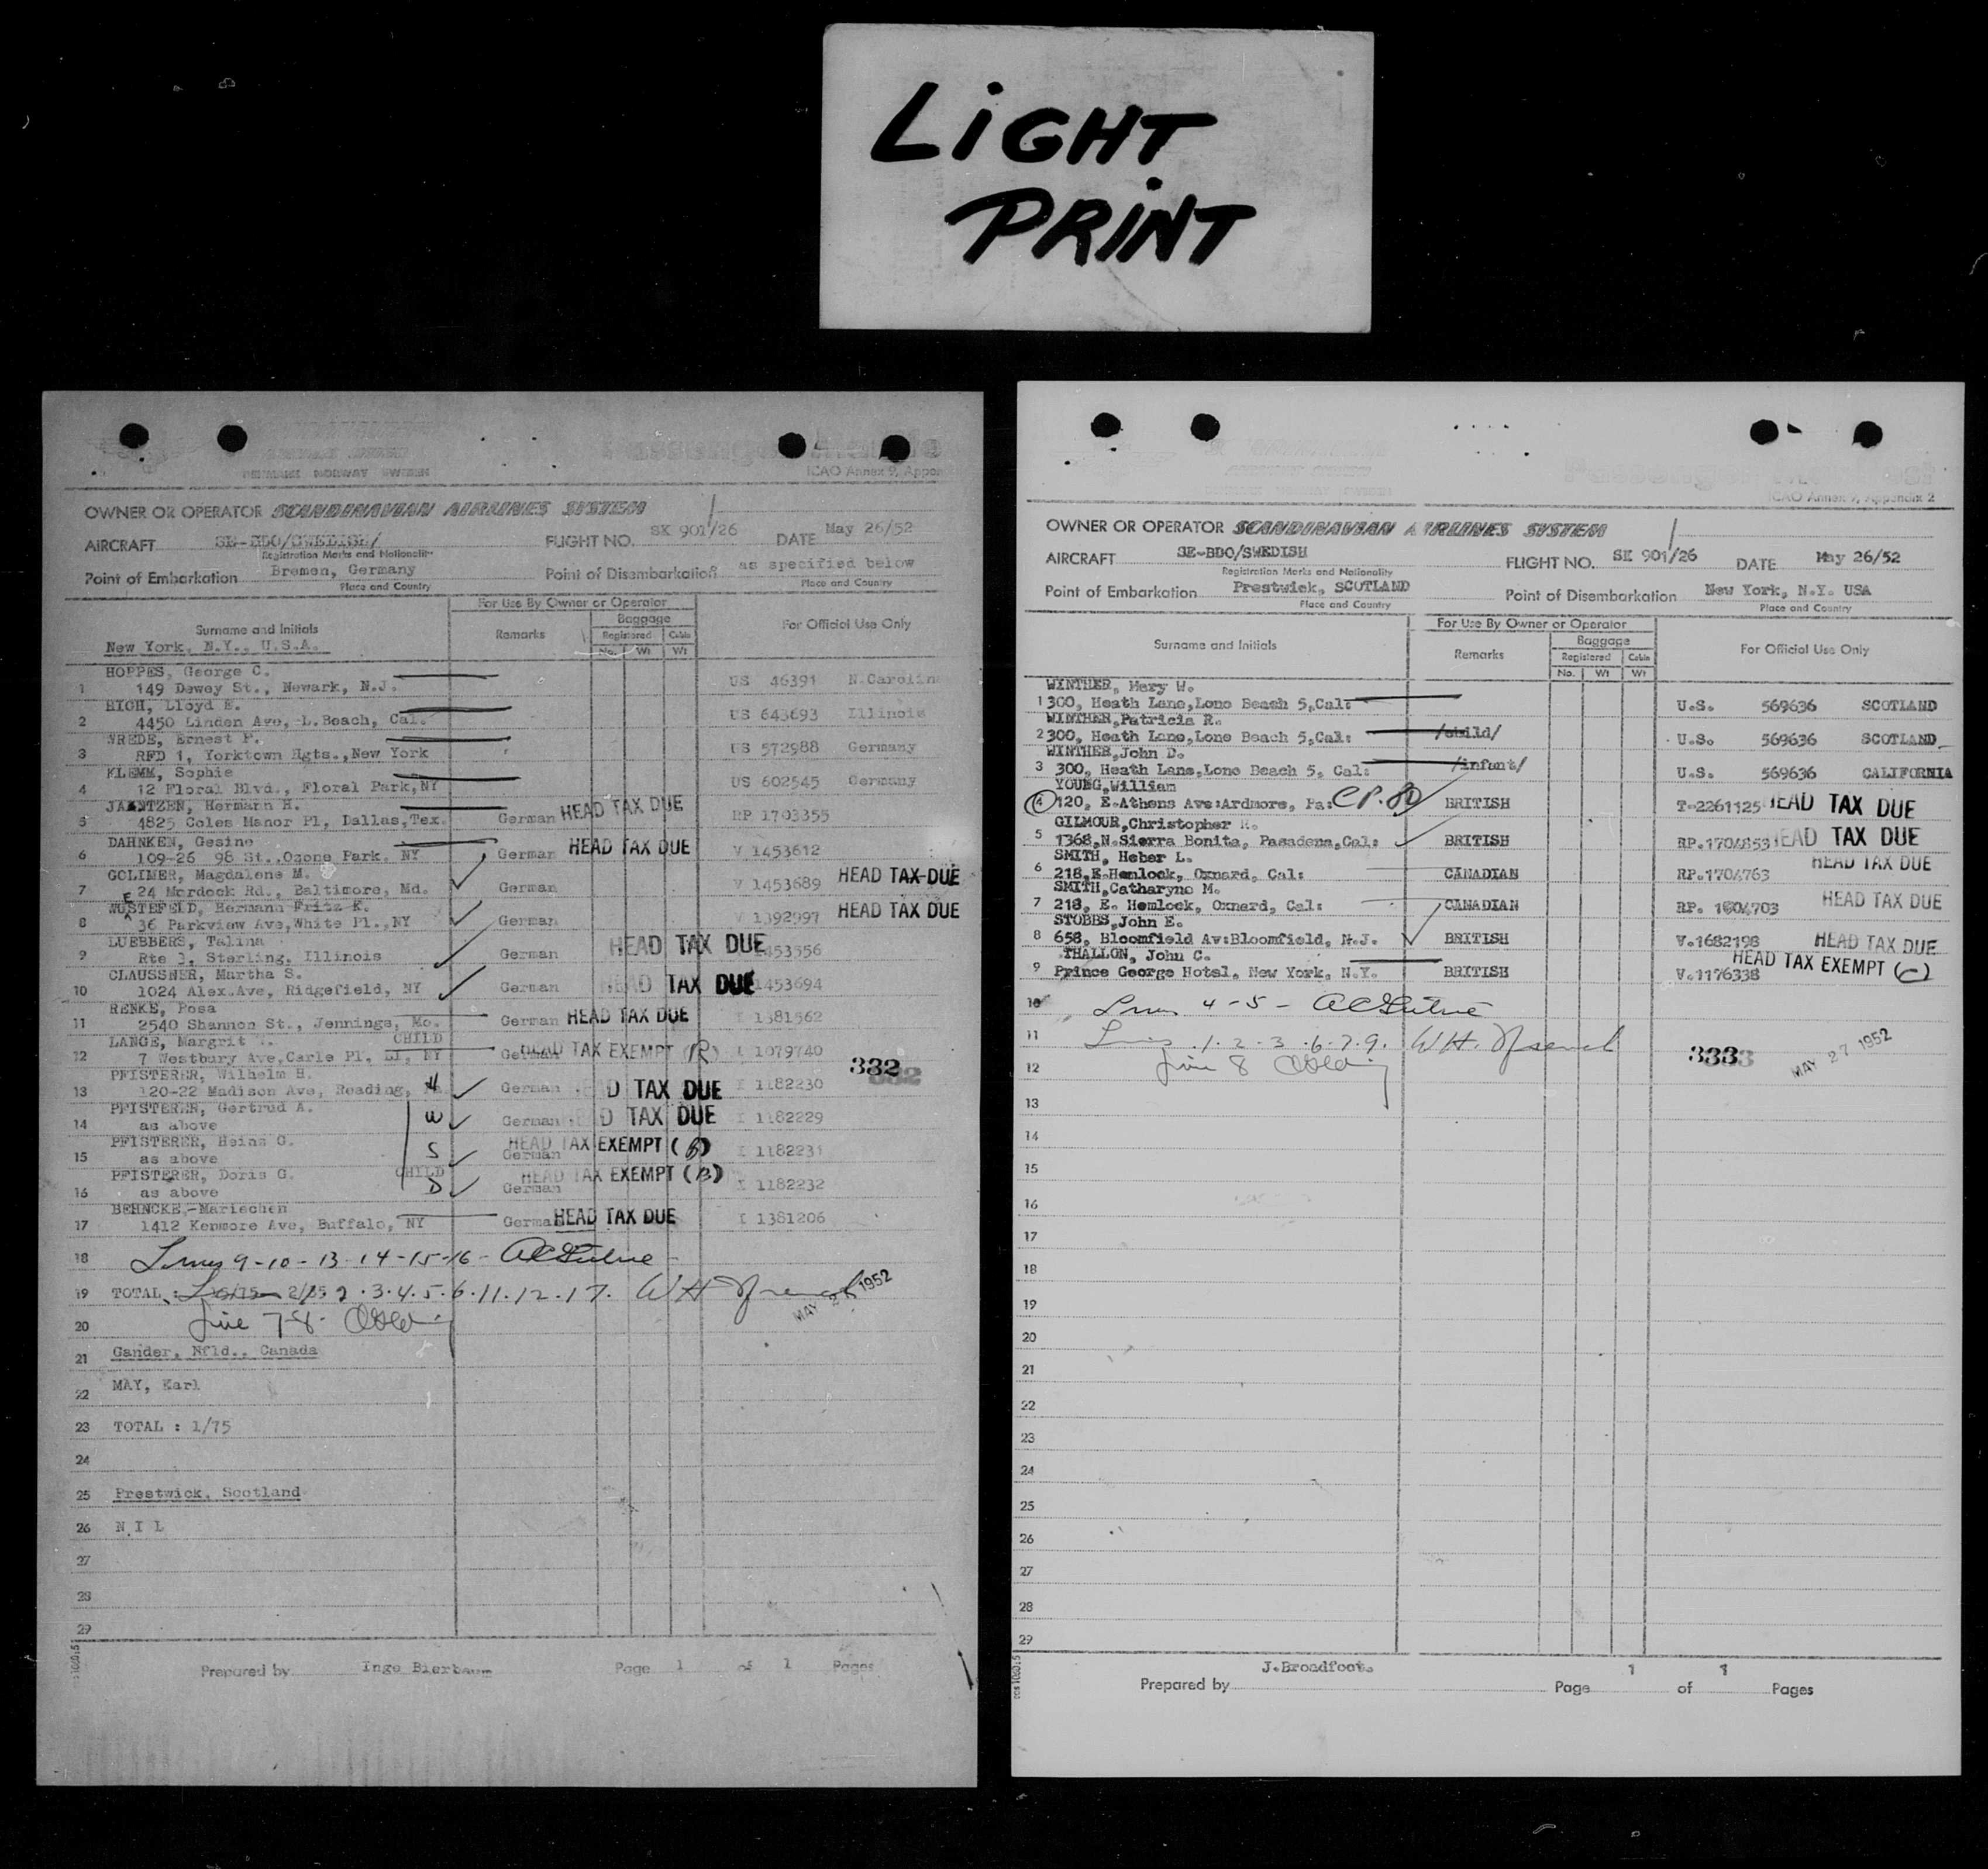 LIGHT
PRINT
DENMARK NORWAY SWEDEN
ICAO Annex 9, Appen
OWNER OR OPERATOR SCANDINAVIAN AIRLINES SYSTEM
AIRCRAFT SE-BDO/SWEDISH/ FLIGHT NO. SK 901/26 DATE May 26/52
Registration Marks and Nationality
Point of Embarkation Bremen, Germany Point of Disembarkation as specified below
Place and Country Place and Country
For Use By Owner or Operator
Surname and Initials Remarks Baggage For Official Use Only
Registered Cabin
No. Wt Wt
New York, N.Y., U.S.A.
HOPPES, George C.
1 149 Dewey St., Newark, N.J. US 46391 N.Carolin
RICH, Lloyd E.
2 4450 Linden Ave, L.Beach, Cal. US 643693 Illinois
WREDE, Ernest F.
3 RFD 1, Yorktown Hgts., New York US 572988 Germany
KLEMM, Sophie
4 12 Floral Blvd., Floral Park, NY US 602545 Germany
JAANTZEN, Hermann H.
5 4825 Coles Manor Pl, Dallas, Tex. German HEAD TAX DUE RP 1703355
DAHNKEN, Gesine
6 109-26 98 St., Ozone Park, NY German HEAD TAX DUE V 1453612
GOLIMER, Magdalene M.
7 24 Murdock Rd., Baltimore, Md. German V 1453689 HEAD TAX DUE
WUSTEFELD, Hermann Fritz K. E
8 36 Parkview Ave, White Pl., NY German V 1392997 HEAD TAX DUE
LUEBBERS, Talina
9 Rte 3, Sterling, Illinois German HEAD TAX DUE 1453556
CLAUSSNER, Martha S.
10 1024 Alex.Ave, Ridgefield, NY German HEAD TAX DUE 1453694
RENKE, Rosa
11 2540 Shannon St., Jennings, Mo. German HEAD TAX DUE I 1381562
LANGE, Margrit CHILD
12 7 Westbury Ave, Carle Pl. LI, NY German HEAD TAX EXEMPT I 1079740
332
PFISTERER, Wilhelm H.
13 120-22 Madison Ave, Reading, Pa. H German HEAD TAX DUE I 1182230
PFISTERER, Gertrud A.
14 as above W German HEAD TAX DUE I 1182229
PFISTERER, Heinz G.
15 as above S German HEAD TAX EXEMPT (B) I 1182231
PFISTERER, Doris G. CHILD
16 as above D German HEAD TAX EXEMPT (B) I 1182232
BEHNCKE, Mariechen
17 1412 Kenmore Ave, Buffalo, NY German HEAD TAX DUE I 1381206
18 Lines 9-10-13-14-15-16-
19 TOTAL : 2.3.4.5.6.11.12.17. WH French MAY 1952
20 Line 7-8
21 Gander, Nfld., Canada
22 MAY, Karl
23 TOTAL : 1/75
24
25 Prestwick, Scotland
26 N I L
27
28
29
Prepared by Inge Bierbaum Page 1 of 1 Pages
ICAO Annex 9, Appendix 2
OWNER OR OPERATOR SCANDINAVIAN AIRLINES SYSTEM
AIRCRAFT SE-BDO/SWEDISH FLIGHT NO. SK 901/26 DATE May 26/52
Registration Marks and Nationality
Point of Embarkation Prestwick, SCOTLAND Point of Disembarkation New York, N.Y. USA
Place and Country Place and Country
For Use By Owner or Operator
Surname and Initials Remarks Baggage For Official Use Only
Registered Cabin
No. Wt Wt
WINTHER, Mary W.
1 300, Heath Lane, Lone Beach 5, Cal: U.S. 569636 SCOTLAND
WINTHER, Patricia R.
2 300, Heath Lane, Lone Beach 5, Cal: /child/ U.S. 569636 SCOTLAND
WINTHER, John D.
3 300, Heath Lane, Lone Beach 5, Cal: /infant/ U.S. 569636 CALIFORNIA
YOUNG, William
4 120, E.Athens Ave:Ardmore, Pa: BRITISH T-2261125 HEAD TAX DUE
GILMOUR, Christopher R.
5 1368, N.Sierra Bonita, Pasadena, Cal: BRITISH RP.1704853 HEAD TAX DUE
SMITH, Heber L.
6 218, E.Hemlock, Oxnard, Cal: CANADIAN RP.1704763 HEAD TAX DUE
SMITH, Catharyne M.
7 218, E. Hemlock, Oxnard, Cal: CANADIAN RP. 1604703 HEAD TAX DUE
STOBBS, John E.
8 658, Bloomfield Av:Bloomfield, N.J. BRITISH V.1682198 HEAD TAX DUE
THALLON, John C.
9 Prince George Hotel, New York, N.Y. BRITISH V.1176338 HEAD TAX EXEMPT (C)
10 Lines 4-5-
11 Lines .1.2.3.6.7.9. WH. French 333 MAY 27 1952
12 Line 8
13
14
15
16
17
18
19
20
21
22
23
24
25
26
27
28
29
J.Broadfoot.
Prepared by Page 1 of 1 Pages